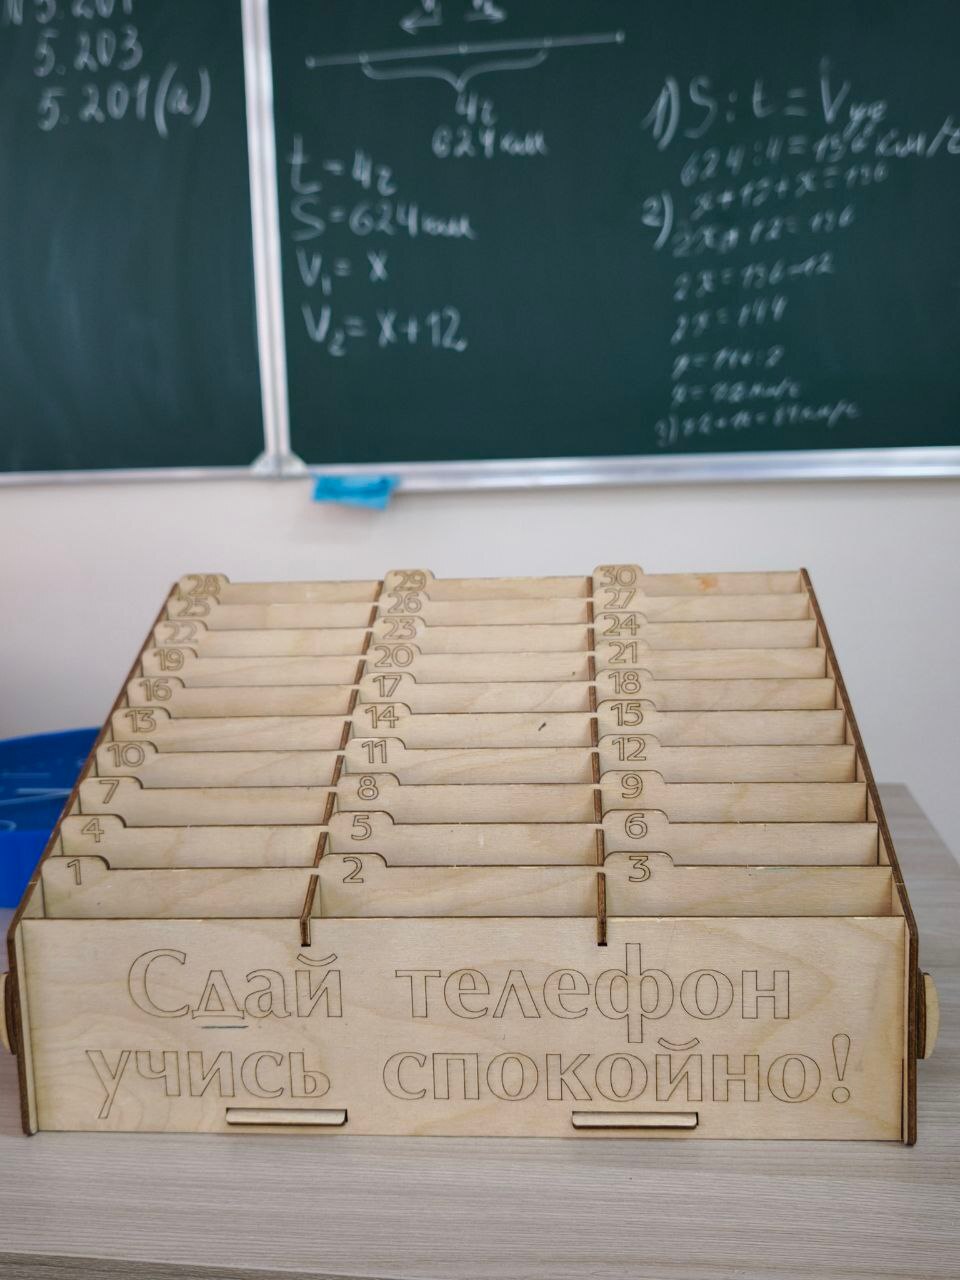 5.203
5.201(а)
4ч
624км
t - 4ч
S - 624км
V₁ = x
V₂ = x+12
1) S : t = Vуд
624:4=156км/ч
2) x+12+x=156
2x+12=156
2x=156-12
2x=144
x=144:2
28 29 30
25 26 27
22 23 24
19 20 21
16 17 18
13 14 15
10 11 12
7 8 9
4 5 6
1 2 3
Сдай телефон
учись спокойно!